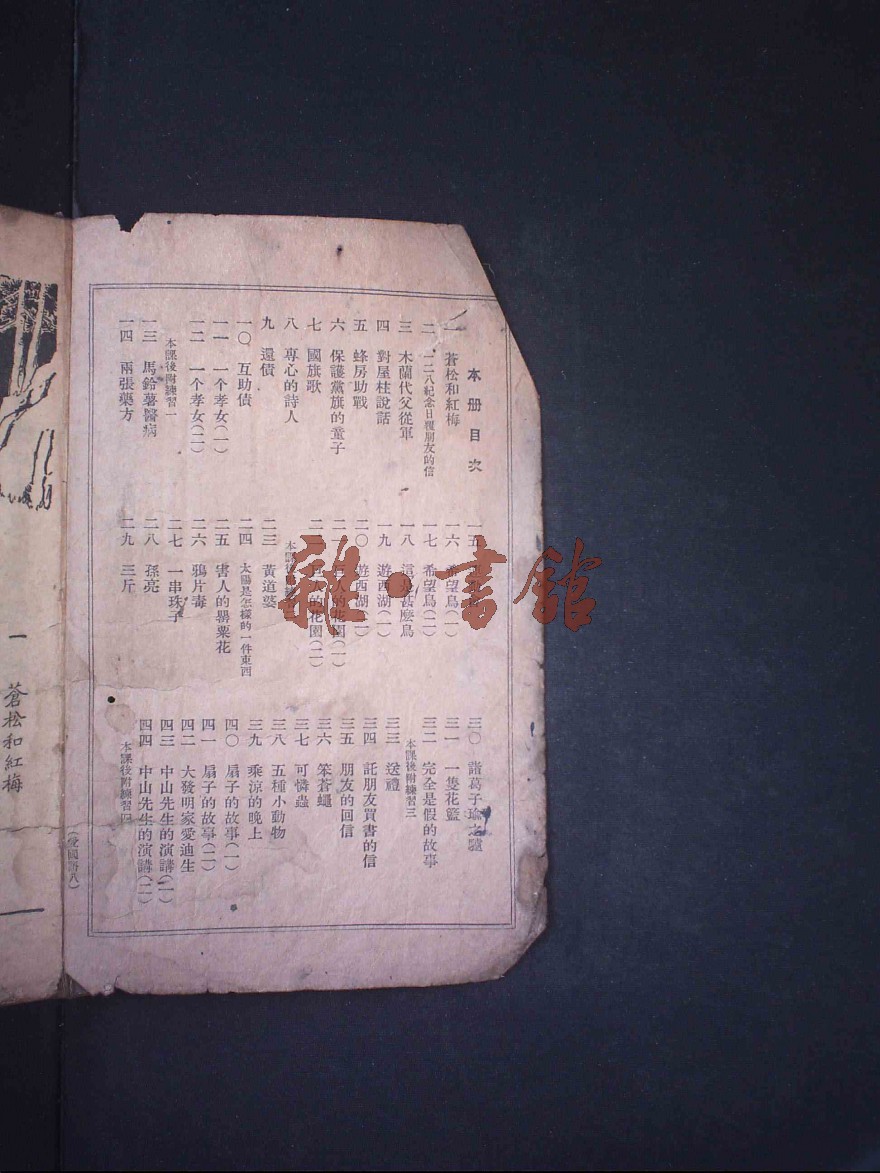 本册目次
一 蒼松和紅梅
二 一二八紀念日覆朋友的信
三 木蘭代父從軍
四 對屋柱說話
五 蜂房助戰
六 保護黨旗的童子
七 國旗歌
八 専心的詩人
九 還債
一〇 互助債
一一 一个孝女(一)
一二 一个孝女(二)
本課後附練習一
一三 馬鈴薯醫病
一四 兩張藥方
一五
一六 希望鳥(一)
一七 希望鳥(二)
一八 這是甚麽鳥
一九 遊西湖(一)
二〇 遊西湖(二)
二一 巨人的花園(一)
二二 巨人的花園(二)
本課後
二三 黃道婆
二四 太陽是怎樣的一件東西
二五 害人的罌粟花
二六 鴉片毒
二七 一串珠子
二八 孫亮
二九 三斤
三〇 諸葛子瑜之驢
三一 一隻花籃
三二 完全是假的故事
本課後附練習三
三三 送禮
三四 託朋友買書的信
三五 朋友的回信
三六 笨蒼蠅
三七 可憐蟲
三八 五種小動物
三九 乘涼的晚上
四〇 扇子的故事(一)
四一 扇子的故事(二)
四二 大發明家愛迪生
四三 中山先生的演講(一)
四四 中山先生的演講(二)
本課後附練習四
(愛國語八)
一 蒼松和紅梅
雜·書館